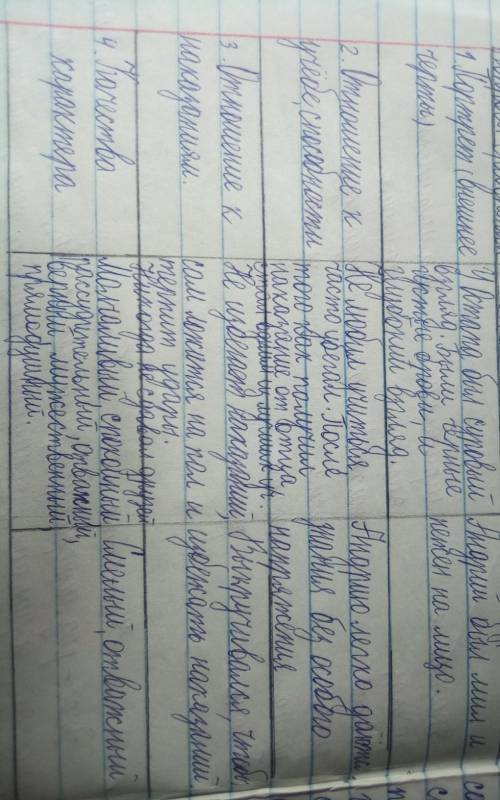 1. Портрет (внешнее
черты)
У Остапа был суровый
взгляд. Были чёрные
густые брови, и
глубокий взгляд.
Андрий был мил и
нежен на лицо.
2. Отношение к
учёбе, способности
Не любил учиться
часто убегал. После
того как получил
наказание от отца
Андрию легко дают.
знания без особого
напряжения
3. Отношение к
наказаниям.
Не избегает наказаний,
сам ложится на пол и
терпит удары.
Никогда не
Выкручивался, чтоб
избежать наказаний.
4. Качества
характера
Молчаливый спокойный
рассудительный, отважный,
верный мужественный
прямодушный.
отважный